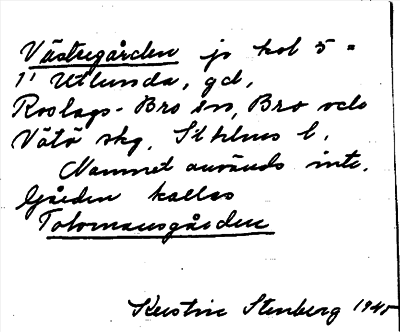 Västregården jr kol 5 =
1¹ Utlunda, gd,
Roslags-Bro sn, Bro och
Vätö skg, Sthlms l.
Namnet används inte.
Gården kallas
Tolvmansgården
Kerstin Stenberg 1945